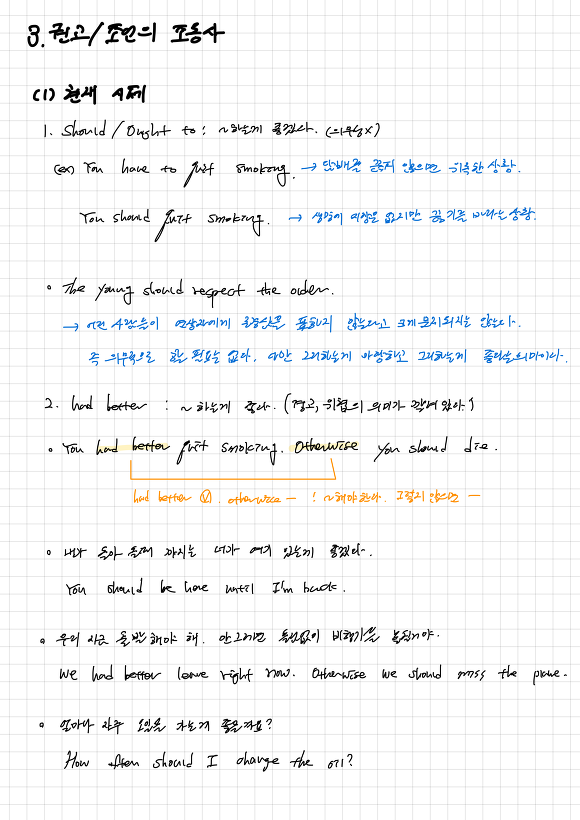 3. 권고/조언의 조동사
(1) 현재 시제
1. Should / Ought to : ~하는게 좋겠다. (의무성X)
(ex) You have to quit smoking. → 담배를 끊지 않으면 위독한 상황.
You should quit smoking. → 생명에 지장은 없지만 끊기를 바라는 상황.
◦ The young should respect the older.
→ 어린 사람들이 연상자에게 존경심을 표하지 않는다고 크게 문제되지는 않는다.
즉 의무적으로 할 필요는 없다. 다만 그러하는게 마땅하고 그러하는게 좋다는 의미이다.
2. had better : ~하는게 좋다. (경고, 위협의 의미가 깔려 있다.)
◦ You had better quit smoking. Otherwise you should die.
had better Ⓥ. otherwise — : ~해야한다. 그렇지 않으면 —
◦ 내가 돌아 올때 까지는 너가 여기 있는게 좋겠다.
You should be here until I'm back.
◦ 우리 지금 출발해야 해. 안그러면 틀림없이 비행기를 놓칠거야.
We had better leave right now. Otherwise we should miss the plane.
◦ 얼마나 자주 오일을 가는게 좋을까요?
How often should I change the oil?